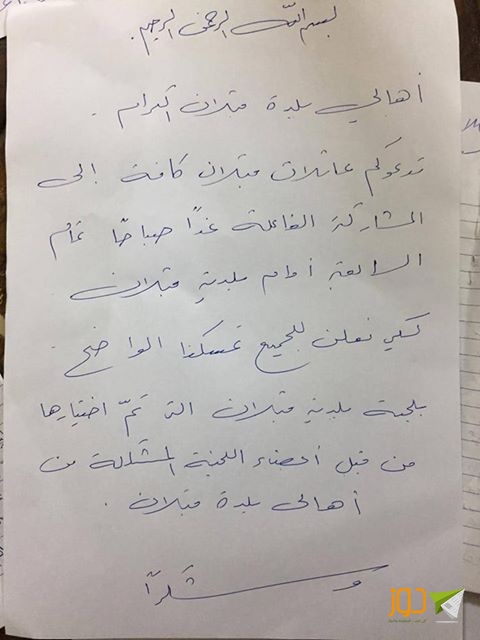 بسم الله الرحمن الرحيم.
أهالي بلدة قبلان الكرام.
تدعوكم عائلات قبلان كافة إلى
المشاركة الفاعلة غدًا صباحًا تمام
أمام بلدية قبلان.
لكي نعلن للجميع تمسكنا الواضح
بلجنة بلدية قبلان التي تمّ اختيارها
من قبل أعضاء اللجنة المشكلة من
أهالي بلدة قبلان.
و شكرًا
دوز